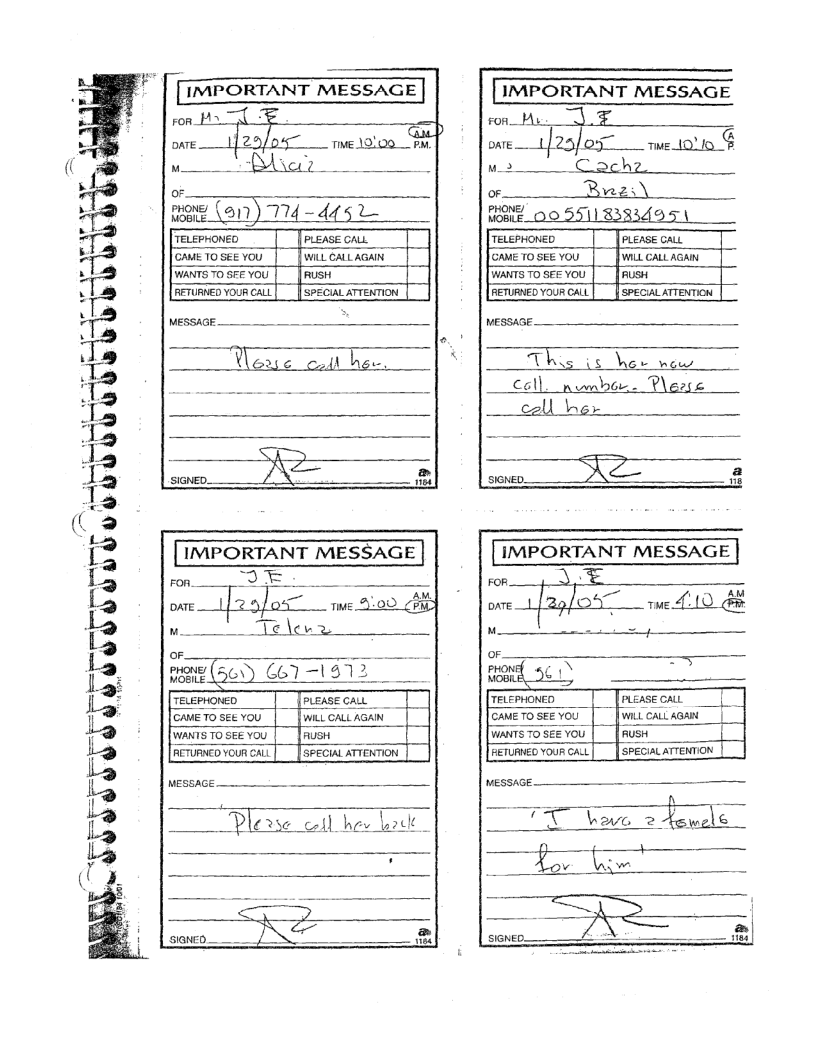 IMPORTANT MESSAGE
FOR Mr J.E
DATE 1/29/05 TIME 10:00 A.M. P.M.
M Alicia
OF
PHONE/ MOBILE (917) 774-4452
TELEPHONED PLEASE CALL
CAME TO SEE YOU WILL CALL AGAIN
WANTS TO SEE YOU RUSH
RETURNED YOUR CALL SPECIAL ATTENTION
MESSAGE
Please call her.
SIGNED 1184
IMPORTANT MESSAGE
FOR Mr. J.E
DATE 1/29/05 TIME 10:10 A P.
M Cacha
OF Brazil
PHONE/ MOBILE 00551183834951
TELEPHONED PLEASE CALL
CAME TO SEE YOU WILL CALL AGAIN
WANTS TO SEE YOU RUSH
RETURNED YOUR CALL SPECIAL ATTENTION
MESSAGE
This is her new
Cell. number. Please
call her
SIGNED 118
IMPORTANT MESSAGE
FOR J.E.
DATE 1/29/05 TIME 9:00 A.M. P.M.
M Telena
OF
PHONE/ MOBILE (561) 667-1973
TELEPHONED PLEASE CALL
CAME TO SEE YOU WILL CALL AGAIN
WANTS TO SEE YOU RUSH
RETURNED YOUR CALL SPECIAL ATTENTION
MESSAGE
Please call her back
SIGNED 1184
IMPORTANT MESSAGE
FOR J.E
DATE 1/30/05 TIME 4:10 A.M P.M.
M
OF
PHONE/ MOBILE 561)
TELEPHONED PLEASE CALL
CAME TO SEE YOU WILL CALL AGAIN
WANTS TO SEE YOU RUSH
RETURNED YOUR CALL SPECIAL ATTENTION
MESSAGE
"I have a female
for him"
SIGNED 1184